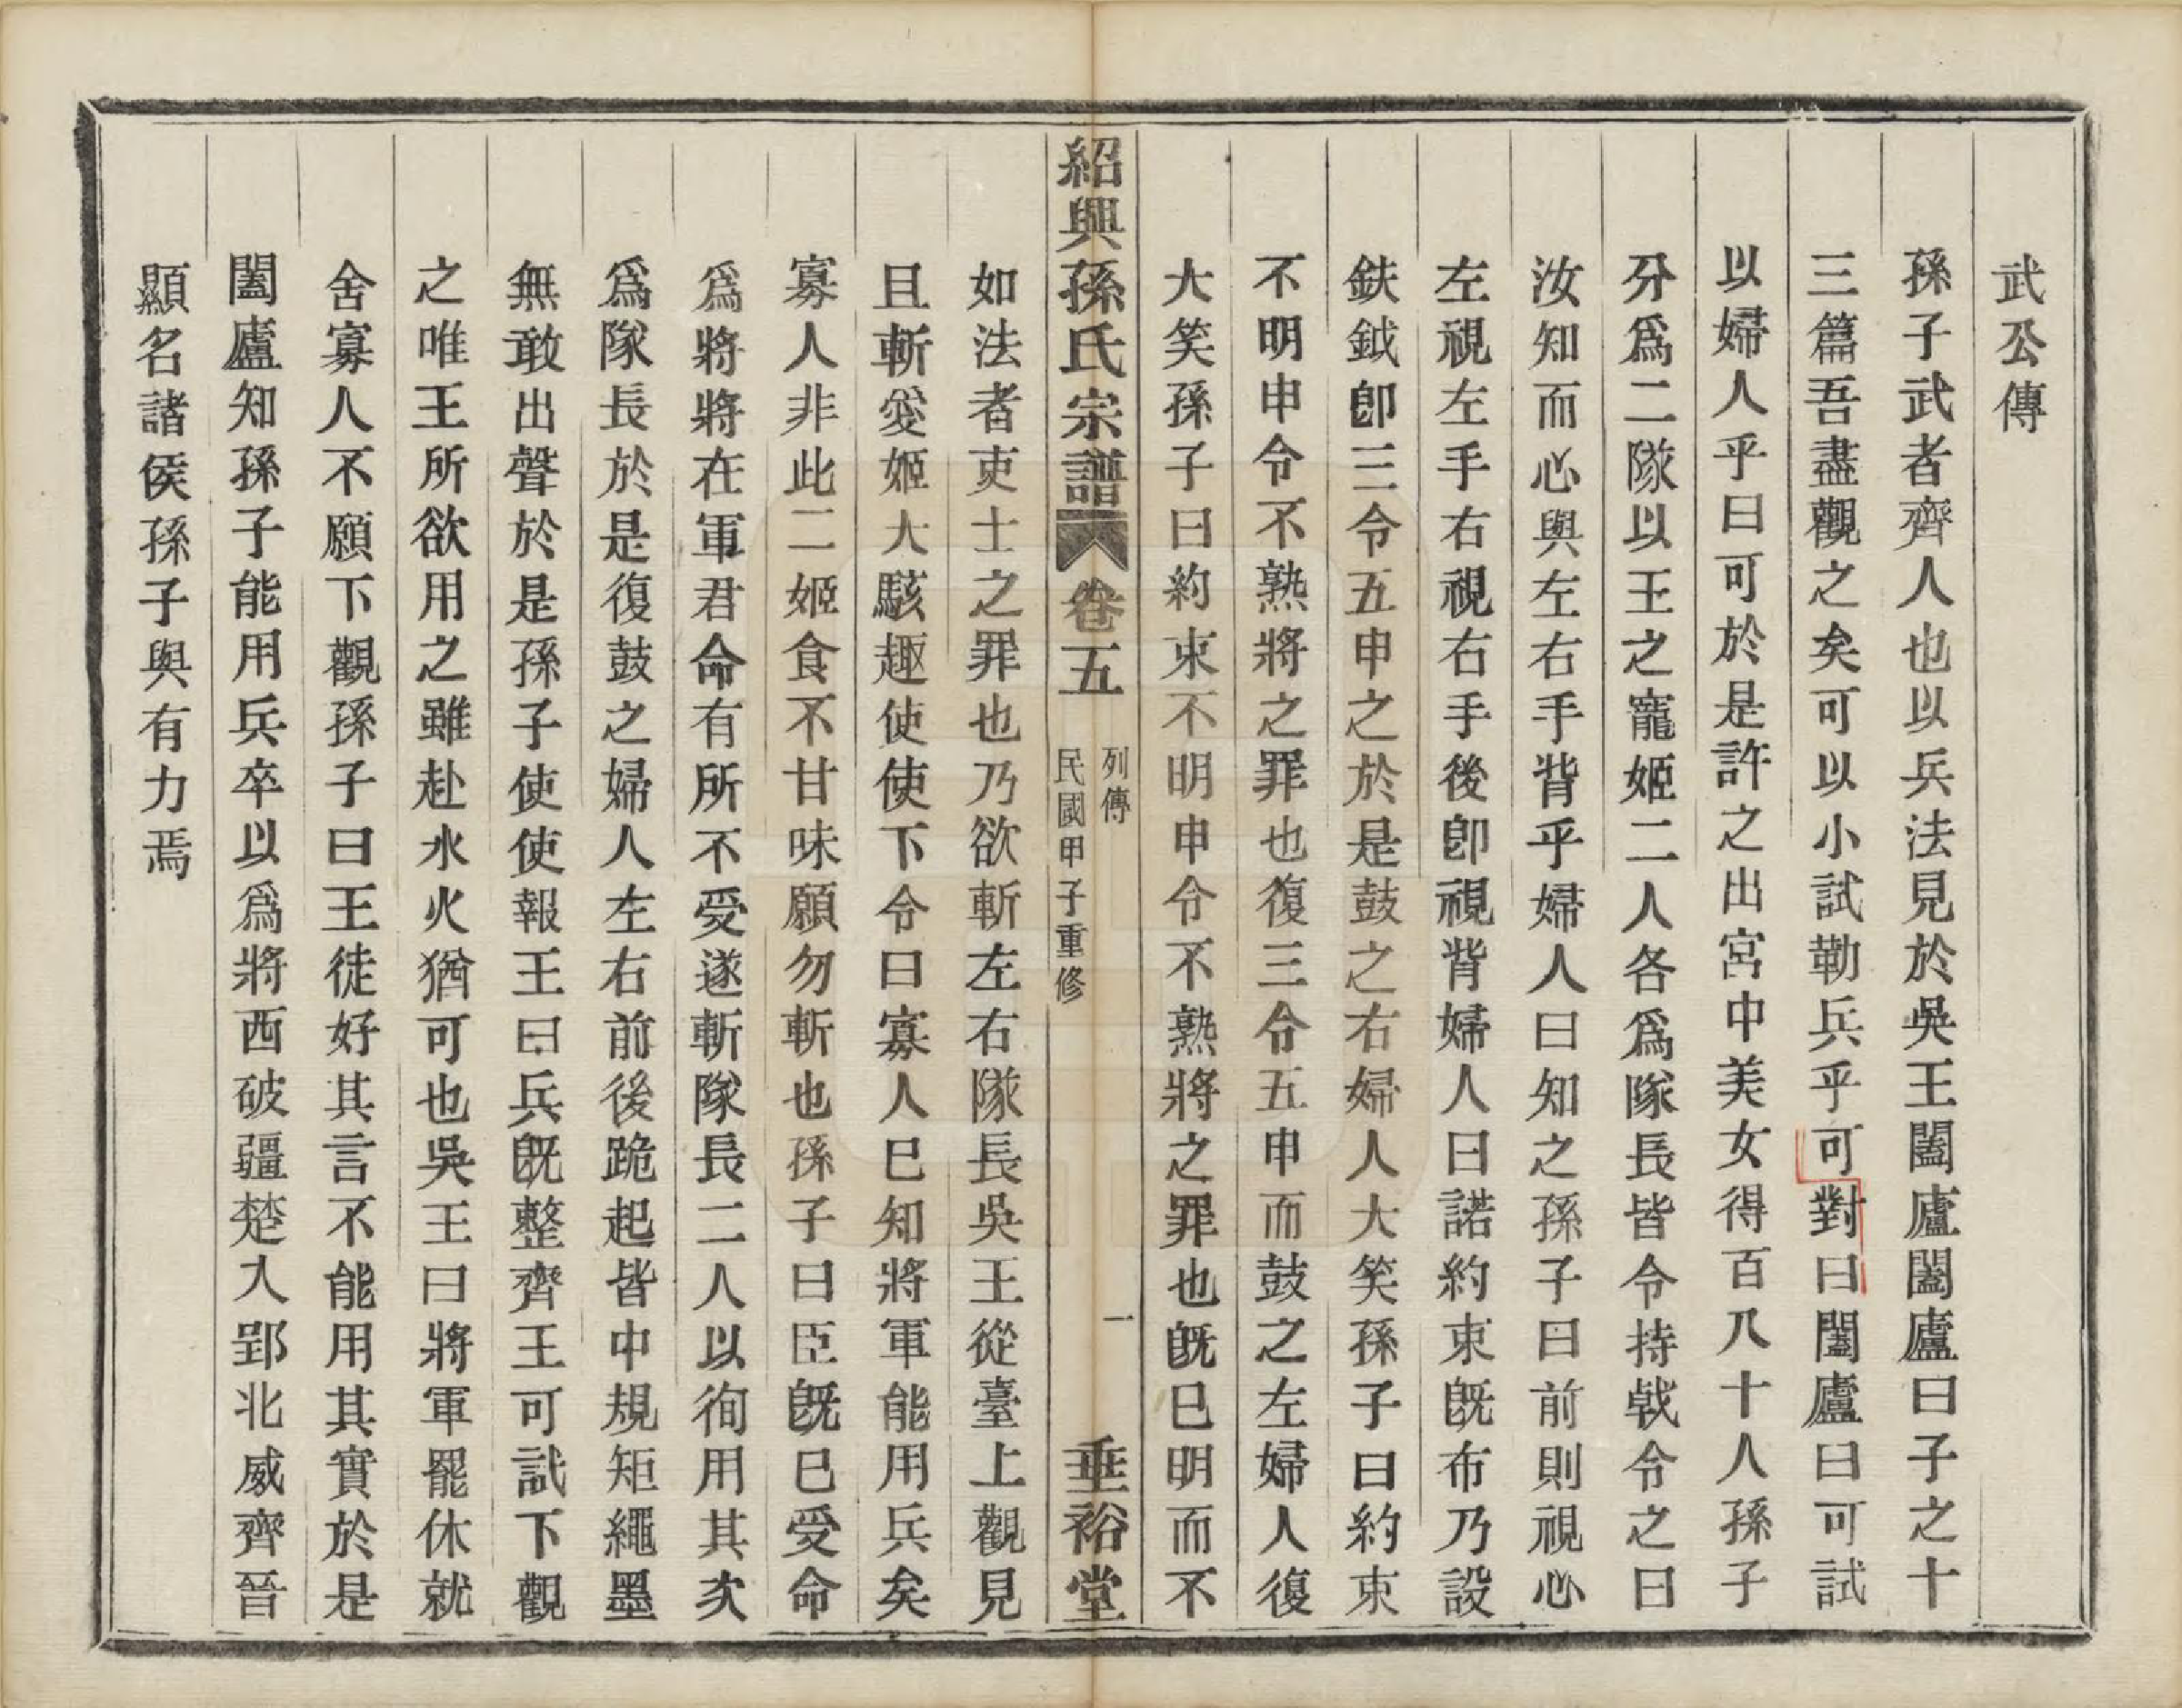 武公傳
孫子武者齊人也以兵法見於吳王闔廬闔廬曰子之十
三篇吾盡觀之矣可以小試勒兵乎可對曰闔廬曰可試
以婦人乎曰可於是許之出宮中美女得百八十人孫子
分爲二隊以王之寵姬二人各爲隊長皆令持戟令之曰
汝知而心與左右手背乎婦人曰知之孫子曰前則視心
左視左手右視右手後卽視背婦人曰諾約束旣布乃設
鈇鉞卽三令五申之於是鼓之右婦人大笑孫子曰約束
不明申令不熟將之罪也復三令五申而鼓之左婦人復
大笑孫子曰約束不明申令不熟將之罪也旣已明而不
紹興孫氏宗譜 卷五 列傳 民國甲子重修 一 垂裕堂
如法者吏士之罪也乃欲斬左右隊長吳王從臺上觀見
且斬愛姬大駭趣使使下令曰寡人已知將軍能用兵矣
寡人非此二姬食不甘味願勿斬也孫子曰臣旣已受命
爲將將在軍君命有所不受遂斬隊長二人以徇用其次
爲隊長於是復鼓之婦人左右前後跪起皆中規矩繩墨
無敢出聲於是孫子使使報王曰兵旣整齊王可試下觀
之唯王所欲用之雖赴水火猶可也吳王曰將軍罷休就
舍寡人不願下觀孫子曰王徒好其言不能用其實於是
闔廬知孫子能用兵卒以爲將西破疆楚入郢北威齊晉
顯名諸侯孫子與有力焉